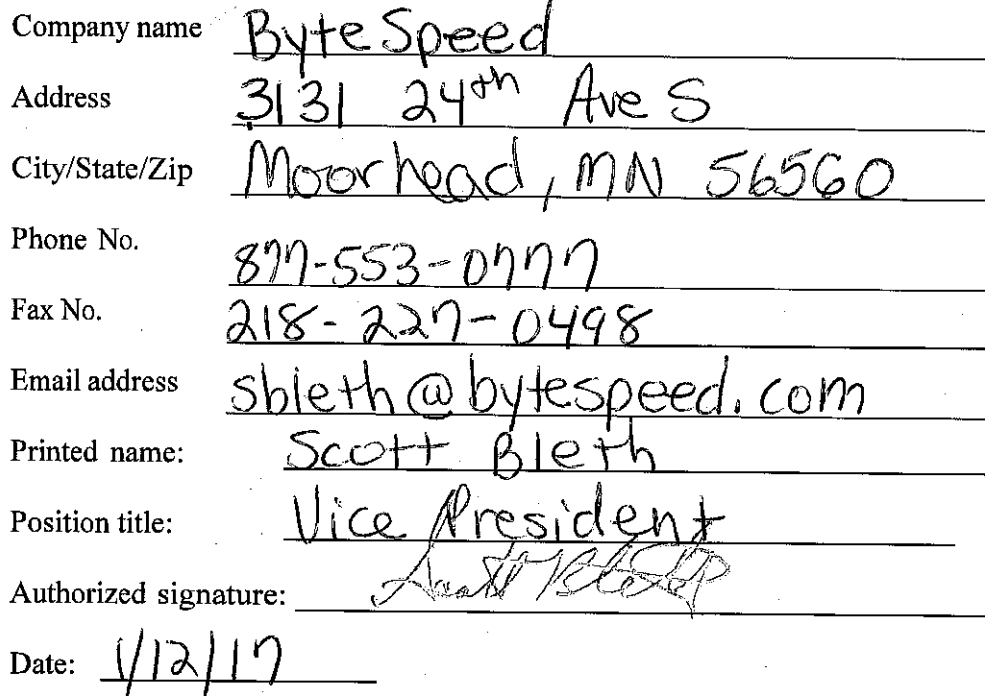 Company name ByteSpeed
Address 3131 24th Ave S
City/State/Zip Moorhead, MN 56560
Phone No. 877-553-0777
Fax No. 218-227-0498
Email address sbleth@bytespeed.com
Printed name: Scott Bleth
Position title: Vice President
Authorized signature: Scott Bleth
Date: 1/12/17